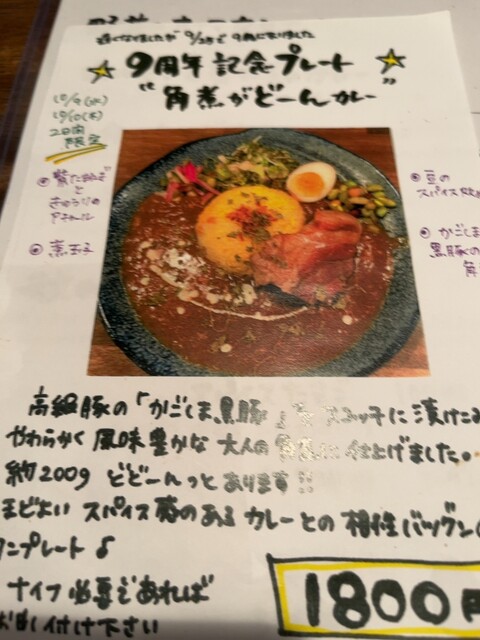 遅くなりましたが 9/28で 9周年になりました
9周年 記念プレート
"角煮がどーんカレー"
10/9(水)
10/10(木)
2日間
限定
きゅうりの
アチャール
煮玉子
豆の
スパイス
かごしま
黒豚の
角
高級豚の「かごしま黒豚」を に漬けこみ
やわらかく 風味豊かな 大人の角煮に仕上げました。
約200g どどーんっとあります!!
ほどよい スパイス感のある カレーとの 相性バツグン
ワンプレート♪
ナイフ必要であれば
お申し付け下さい
1800円